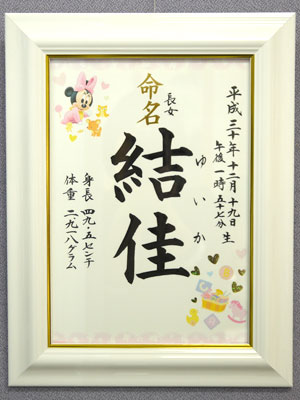 平成三十年十二月十九日 生
午後一時五十七分
ゆいか
長女
命名
結佳
身長 四九・五センチ
体重 二九一八グラム